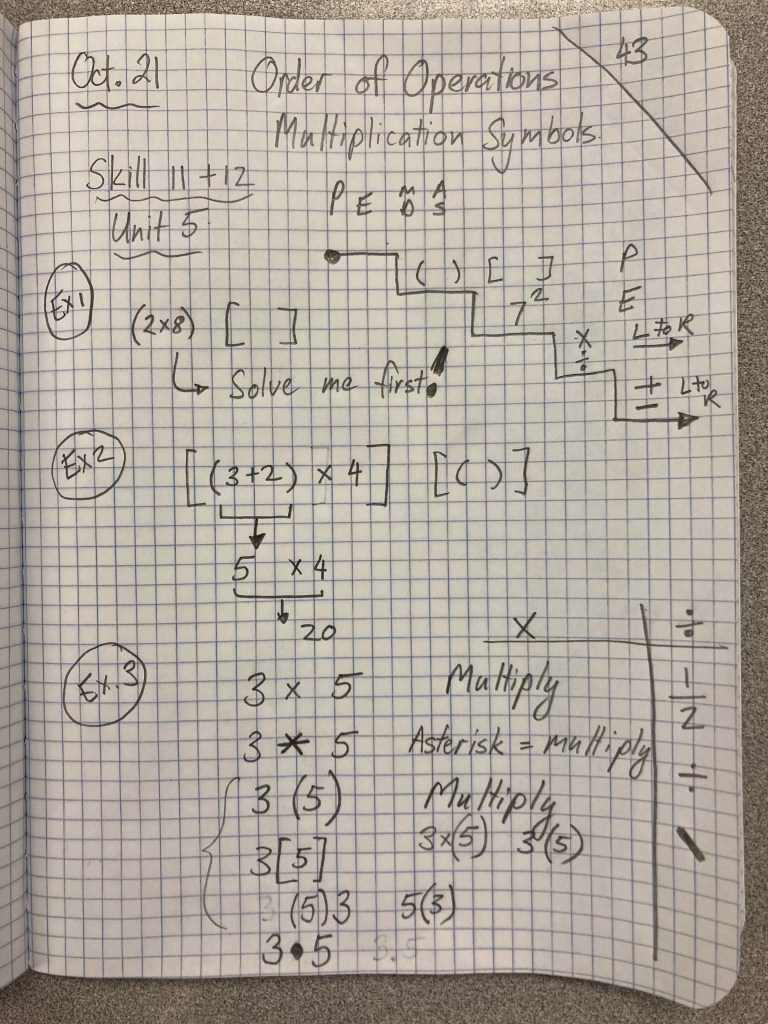 43
Oct. 21 Order of Operations
Multiplication Symbols
Skill 11 + 12
Unit 5
P E M D A S
( ) [ ] P
7² E
× ÷ L to R
+ − L to R
Ex 1 (2×8) [ ]
Solve me first!
Ex 2 [(3+2) × 4] [( )]
5 × 4
20
× ÷
Ex. 3 3 × 5 Multiply 1/2
3 * 5 Asterisk = multiply
÷
3 (5) Multiply
3×(5) 3(5) /
3[5]
3 (5)3 5(3)
3•5 3.5